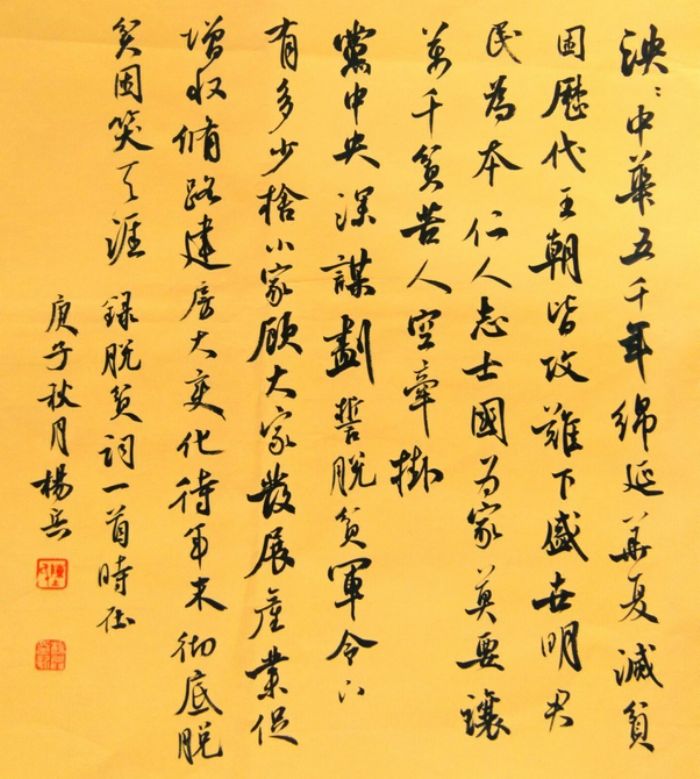 泱:中華五千年綿延華夏減貧
困歷代王朝皆攻難下盛世明君
民為本仁人志士國为家莫要讓
萬千貧苦人空牽掛
黨中央深謀劃誓脫貧軍令下
有多少捨小家顧大家發展產業促
增收脩路建房大變化待年末彻底脫
貧困笑天涯 錄脫貧詞一首時在
庚子秋月楊兵